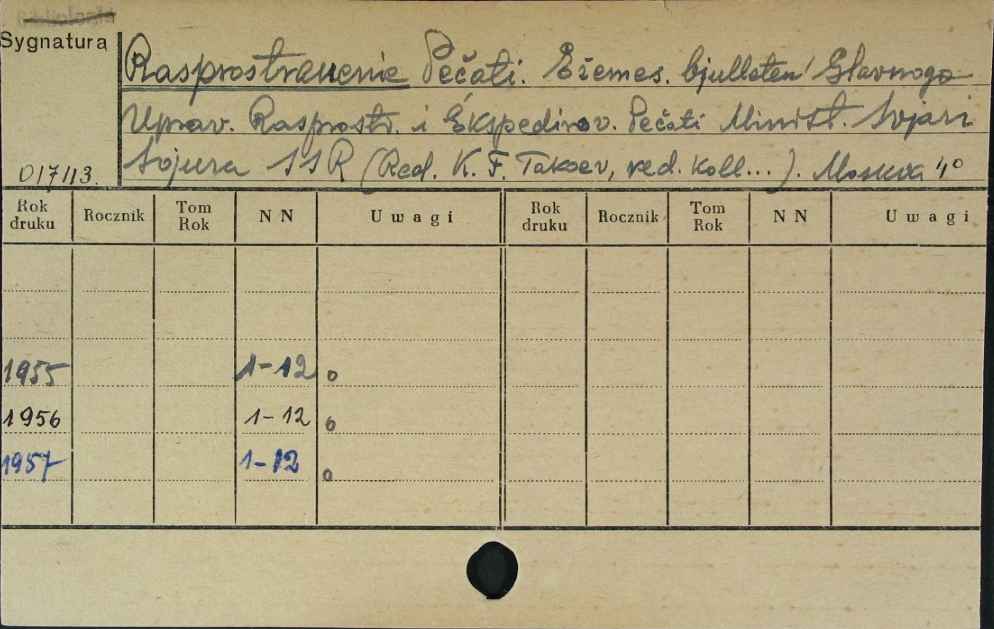 Sygnatura
Rasprostranenie Pečati. Ežemes. bjulleten' Glavnogo
Uprav. Rasprostr. i Èkspedirov. Pečati Minist. Svjazi
Sojuza SSR (Red. K. F. Takoev, red. koll...). Moskva 4°
017113.
Rok druku Rocznik Tom Rok N N Uwagi Rok druku Rocznik Tom Rok N N Uwagi
1955 1-12 0
1956 1-12 0
1957 1-12 0